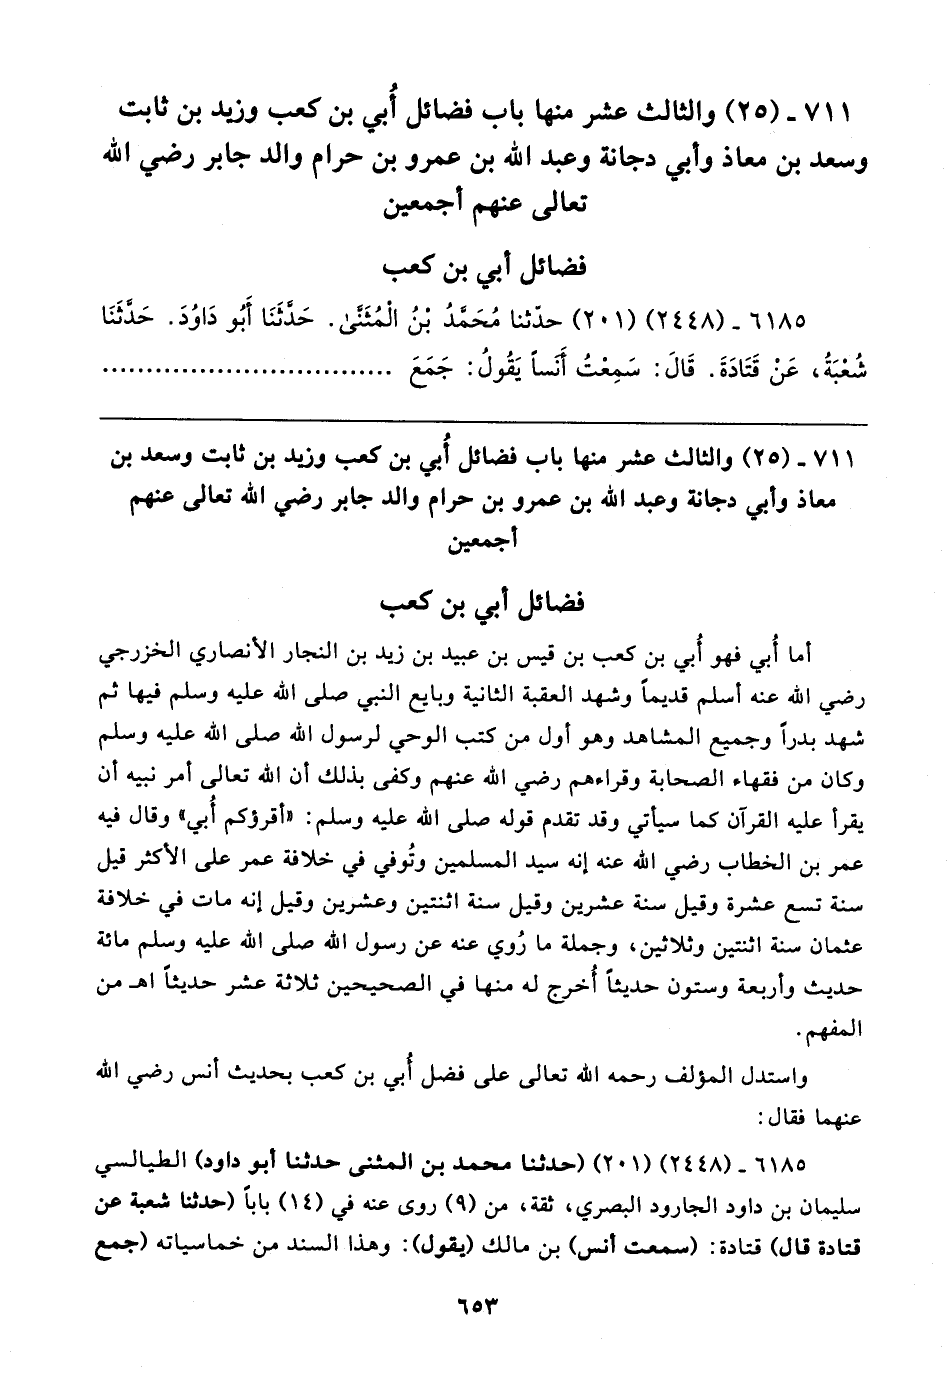 ٧١١ ـ (٢٥) والثالث عشر منها باب فضائل أُبي بن كعب وزيد بن ثابت
وسعد بن معاذ وأبي دجانة وعبد الله بن عمرو بن حرام والد جابر رضي الله
تعالى عنهم أجمعين
فضائل أبي بن كعب
٦١٨٥ ـ (٢٤٤٨) (٢٠١) حدّثنا مُحَمَّدُ بْنُ الْمُثَنَّىٰ. حَدَّثَنَا أَبُو دَاوُدَ. حَدَّثَنَا
شُعْبَةُ، عَنْ قَتَادَةَ. قَالَ: سَمِعْتُ أَنَساً يَقُولُ: جَمَعَ ................................
٧١١ ـ (٢٥) والثالث عشر منها باب فضائل أُبي بن كعب وزيد بن ثابت وسعد بن
معاذ وأبي دجانة وعبد الله بن عمرو بن حرام والد جابر رضي الله تعالى عنهم
أجمعين
فضائل أبي بن كعب
أما أُبي فهو أُبي بن كعب بن قيس بن عبيد بن زيد بن النجار الأنصاري الخزرجي
رضي الله عنه أسلم قديماً وشهد العقبة الثانية وبايع النبي صلى الله عليه وسلم فيها ثم
شهد بدراً وجميع المشاهد وهو أول من كتب الوحي لرسول الله صلى الله عليه وسلم
وكان من فقهاء الصحابة وقراءهم رضي الله عنهم وكفى بذلك أن الله تعالى أمر نبيه أن
يقرأ عليه القرآن كما سيأتي وقد تقدم قوله صلى الله عليه وسلم: «أقرؤكم أُبي» وقال فيه
عمر بن الخطاب رضي الله عنه إنه سيد المسلمين وتُوفي في خلافة عمر على الأكثر قيل
سنة تسع عشرة وقيل سنة عشرين وقيل سنة اثنتين وعشرين وقيل إنه مات في خلافة
عثمان سنة اثنتين وثلاثين، وجملة ما رُوي عنه عن رسول الله صلى الله عليه وسلم مائة
حديث وأربعة وستون حديثاً أُخرج له منها في الصحيحين ثلاثة عشر حديثاً اهـ من
المفهم.
واستدل المؤلف رحمه الله تعالى على فضل أُبي بن كعب بحديث أنس رضي الله
عنهما فقال:
٦١٨٥ ـ (٢٤٤٨) (٢٠١) (حدثنا محمد بن المثنى حدثنا أبو داود) الطيالسي
سليمان بن داود الجارود البصري، ثقة، من (٩) روى عنه في (١٤) باباً (حدثنا شعبة عن
قتادة قال) قتادة: (سمعت أنس) بن مالك (يقول): وهذا السند من خماسياته (جمع
٦٥٣